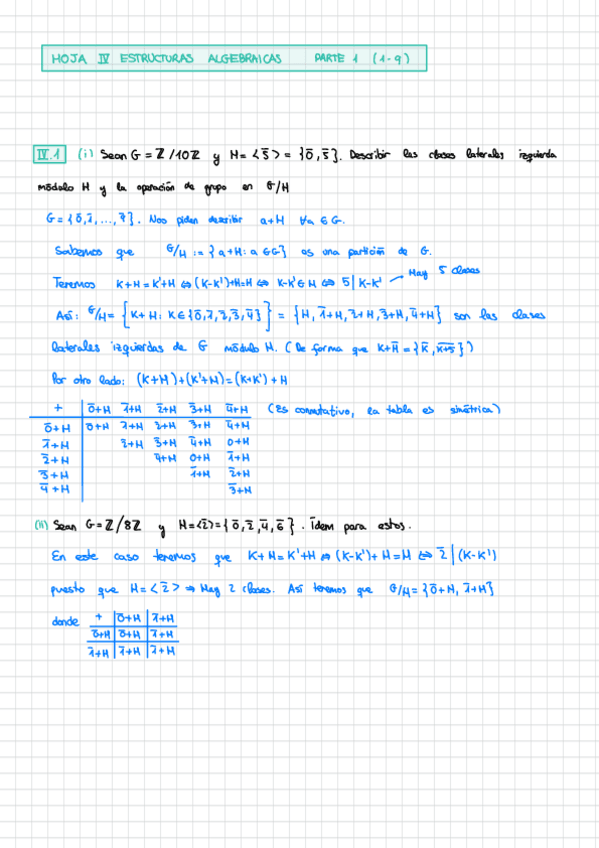 HOJA IV ESTRUCTURAS ALGEBRAICAS PARTE 1 (1-9)
IV.1 (i) Sean G = ℤ/10ℤ y H = <5̄> = {0̄, 5̄}. Describir las clases laterales izquierda
módulo H y la operación de grupo en G/H
G = {0̄, 1̄, ..., 9̄}. Nos piden describir a+H ∀a ∈ G.
Sabemos que G/H := {a+H : a ∈ G} es una partición de G.
Tenemos K+H = K'+H ⇔ (K-K')+H=H ⇔ K-K' ∈ H ⇔ 5 | K-K' → Hay 5 clases
Así: G/H = {K+H : K ∈ {0̄, 1̄, 2̄, 3̄, 4̄}} = {H, 1̄+H, 2̄+H, 3̄+H, 4̄+H} son las clases
laterales izquierdas de G módulo H. (De forma que K+H = {K̄, K+5})
Por otro lado: (K+H)+(K'+H) = (K+K')+H
+ 0̄+H 1̄+H 2̄+H 3̄+H 4̄+H (Es conmutativo, la tabla es simétrica)
0̄+H 0+H 1̄+H 2̄+H 3̄+H 4̄+H
1̄+H 2̄+H 3̄+H 4̄+H 0+H
2̄+H 4̄+H 0+H 1̄+H
3̄+H 1̄+H 2̄+H
4̄+H 3̄+H
(ii) Sean G = ℤ/8ℤ y H = <2̄> = {0̄, 2̄, 4̄, 6̄}. Ídem para estos.
En este caso tenemos que K+H = K'+H ⇔ (K-K')+H = H ⇔ 2̄ | (K-K')
puesto que H = <2̄> ⇒ Hay 2 clases. Así tenemos que G/H = {0̄+H, 1̄+H}
donde + 0̄+H 1̄+H
0̄+H 0̄+H 1̄+H
1̄+H 1̄+H 1̄+H